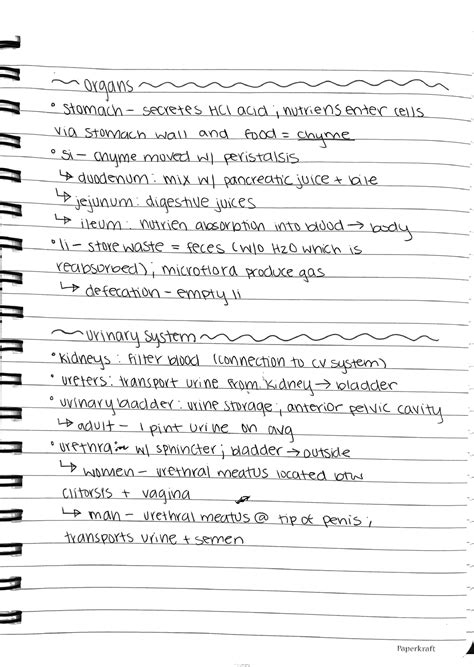 Organs
• stomach - secretes HCl acid ; nutriens enter cells
via stomach wall and food = chyme
• si - chyme moved w/ peristalsis
↳ duodenum : mix w/ pancreatic juice + bile
↳ jejunum : digestive juices
↳ ileum : nutrien absorption into blood → body
• li - store waste = feces (w/o H2O which is
reabsorbed) ; microflora produce gas
↳ defecation - empty li
urinary system
• kidneys : filter blood (connection to cv system)
• ureters : transport urine from kidney → bladder
• urinary bladder : urine storage ; anterior pelvic cavity
↳ adult - 1 pint urine on avg
• urethra - w/ sphincter ; bladder → outside
↳ women - urethral meatus located btw
clitorsis + vagina
↳ man - urethral meatus @ tip of penis ;
transports urine + semen
Paperkraft